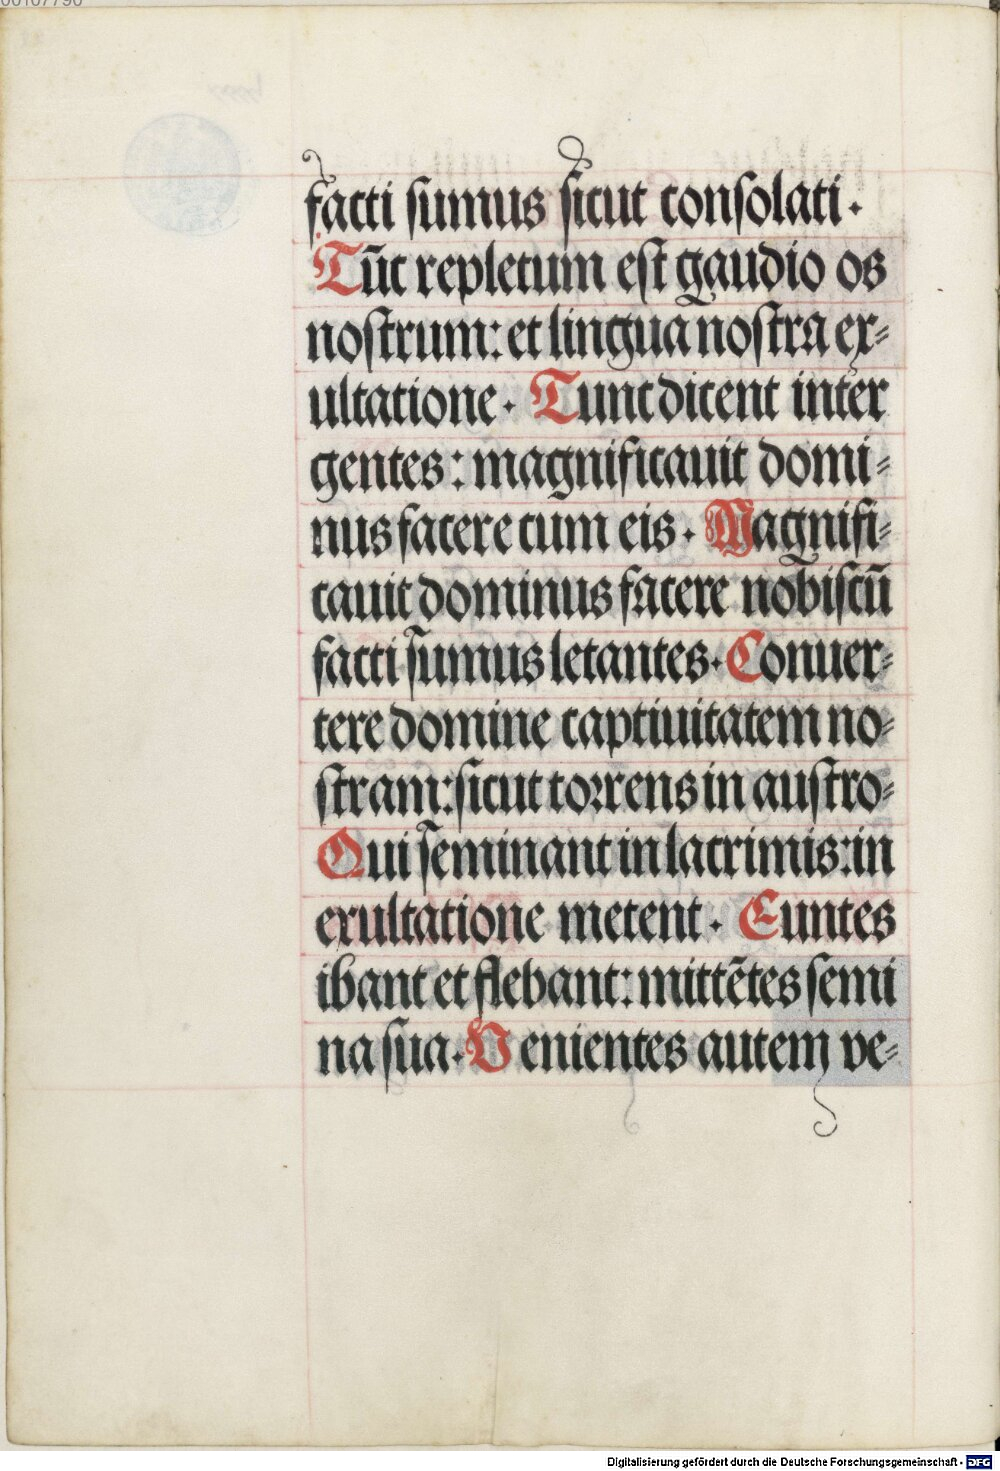 facti sumus sicut consolati ·
Tūc repletum est gaudio os
nostrum: et lingua nostra ex=
ultatione · Tunc dicent inter
gentes: magnificauit domi=
nus facere cum eis · Magnifi=
cauit dominus facere nobiscū
facti sumus letantes · Conuer=
tere domine captiuitatem no=
stram: sicut torrens in austro=
Qui seminant in lacrimis: in
exultatione metent · Euntes
ibant et flebant: mittētes semi
na sua · Venientes autem ve=
Digitalisierung gefördert durch die Deutsche Forschungsgemeinschaft - DFG